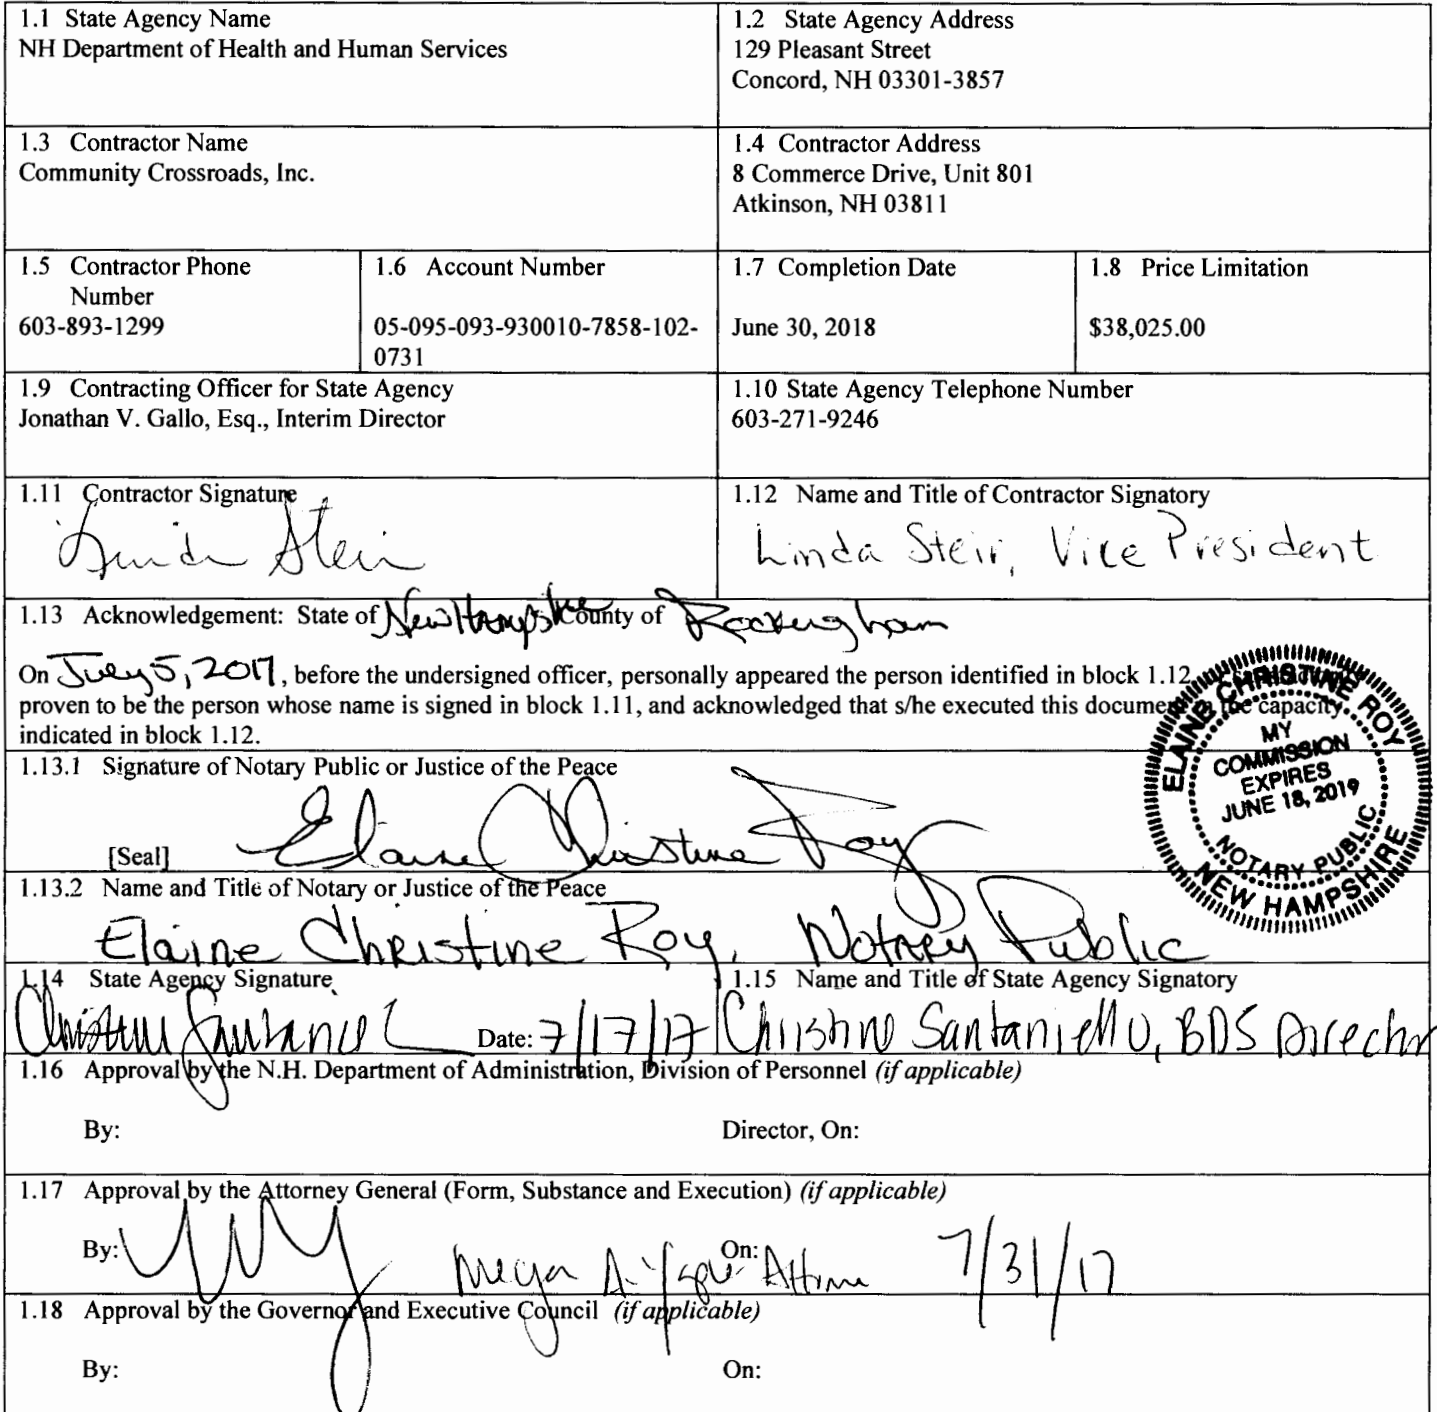 1.1 State Agency Name
NH Department of Health and Human Services
1.2 State Agency Address
129 Pleasant Street
Concord, NH 03301-3857
1.3 Contractor Name
Community Crossroads, Inc.
1.4 Contractor Address
8 Commerce Drive, Unit 801
Atkinson, NH 03811
1.5 Contractor Phone
Number
603-893-1299
1.6 Account Number
05-095-093-930010-7858-102-
0731
1.7 Completion Date
June 30, 2018
1.8 Price Limitation
$38,025.00
1.9 Contracting Officer for State Agency
Jonathan V. Gallo, Esq., Interim Director
1.10 State Agency Telephone Number
603-271-9246
1.11 Contractor Signature
Linda Steir
1.12 Name and Title of Contractor Signatory
Linda Steir, Vice President
1.13 Acknowledgement: State of New Hampshire County of Rockingham
On July 5, 2017, before the undersigned officer, personally appeared the person identified in block 1.12,
proven to be the person whose name is signed in block 1.11, and acknowledged that s/he executed this document in the capacity
indicated in block 1.12.
ELAINE CHRISTINE ROY
MY
COMMISSION
EXPIRES
JUNE 18, 2019
NOTARY PUBLIC
NEW HAMPSHIRE
1.13.1 Signature of Notary Public or Justice of the Peace
[Seal] Elaine Christine Roy
1.13.2 Name and Title of Notary or Justice of the Peace
Elaine Christine Roy, Notary Public
1.14 State Agency Signature
Christine Santaniello Date: 7/17/17
1.15 Name and Title of State Agency Signatory
Christine Santaniello, BDS Director
1.16 Approval by the N.H. Department of Administration, Division of Personnel (if applicable)
By: Director, On:
1.17 Approval by the Attorney General (Form, Substance and Execution) (if applicable)
By: Megan A. On: 7/31/17
1.18 Approval by the Governor and Executive Council (if applicable)
By: On: